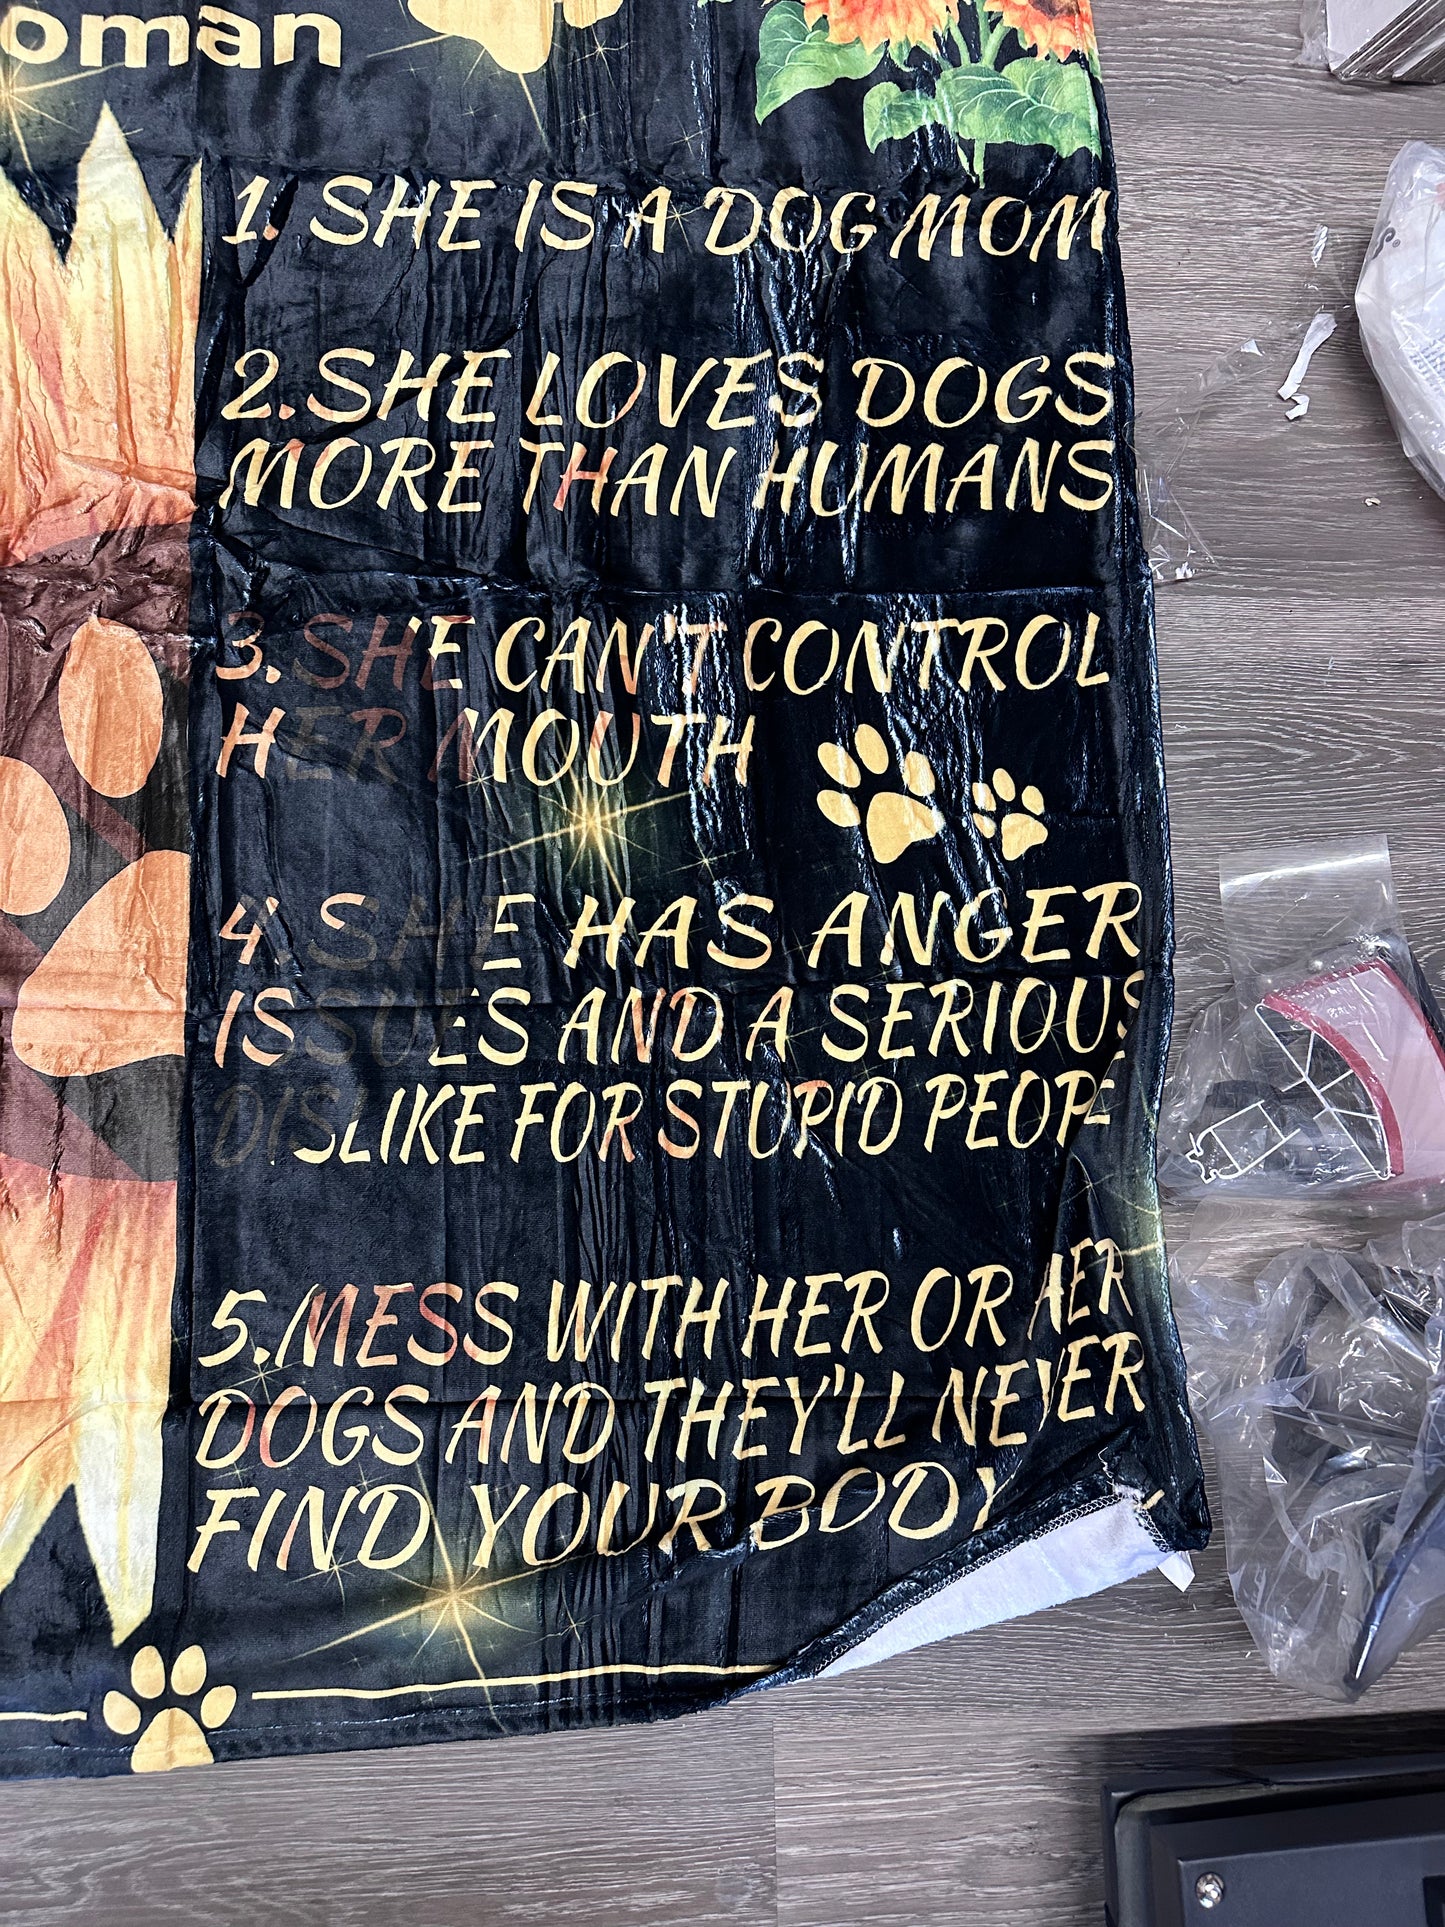 oman
1. SHE IS A DOG MOM
2. SHE LOVES DOGS
MORE THAN HUMANS
3. SHE CAN'T CONTROL
HER MOUTH
4. SHE HAS ANGER
ISSUES AND A SERIOUS
DISLIKE FOR STUPID PEOPL
5. MESS WITH HER OR HER
DOGS AND THEY'LL NEVER
FIND YOUR BODY